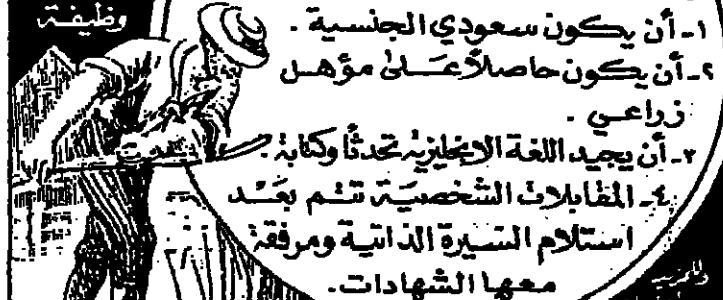 وظيفة
١- أن يكون سعودي الجنسية .
٢- أن يكون حاصلاً عـلى مؤهـل
زراعـي .
٣- أن يجيد اللغة الانجليزية تحدثًا وكتابة .
٤- المقابلات الشخصيـة تتـم بعـد
استلام السيرة الذاتية ومرفقة
معها الشهادات .